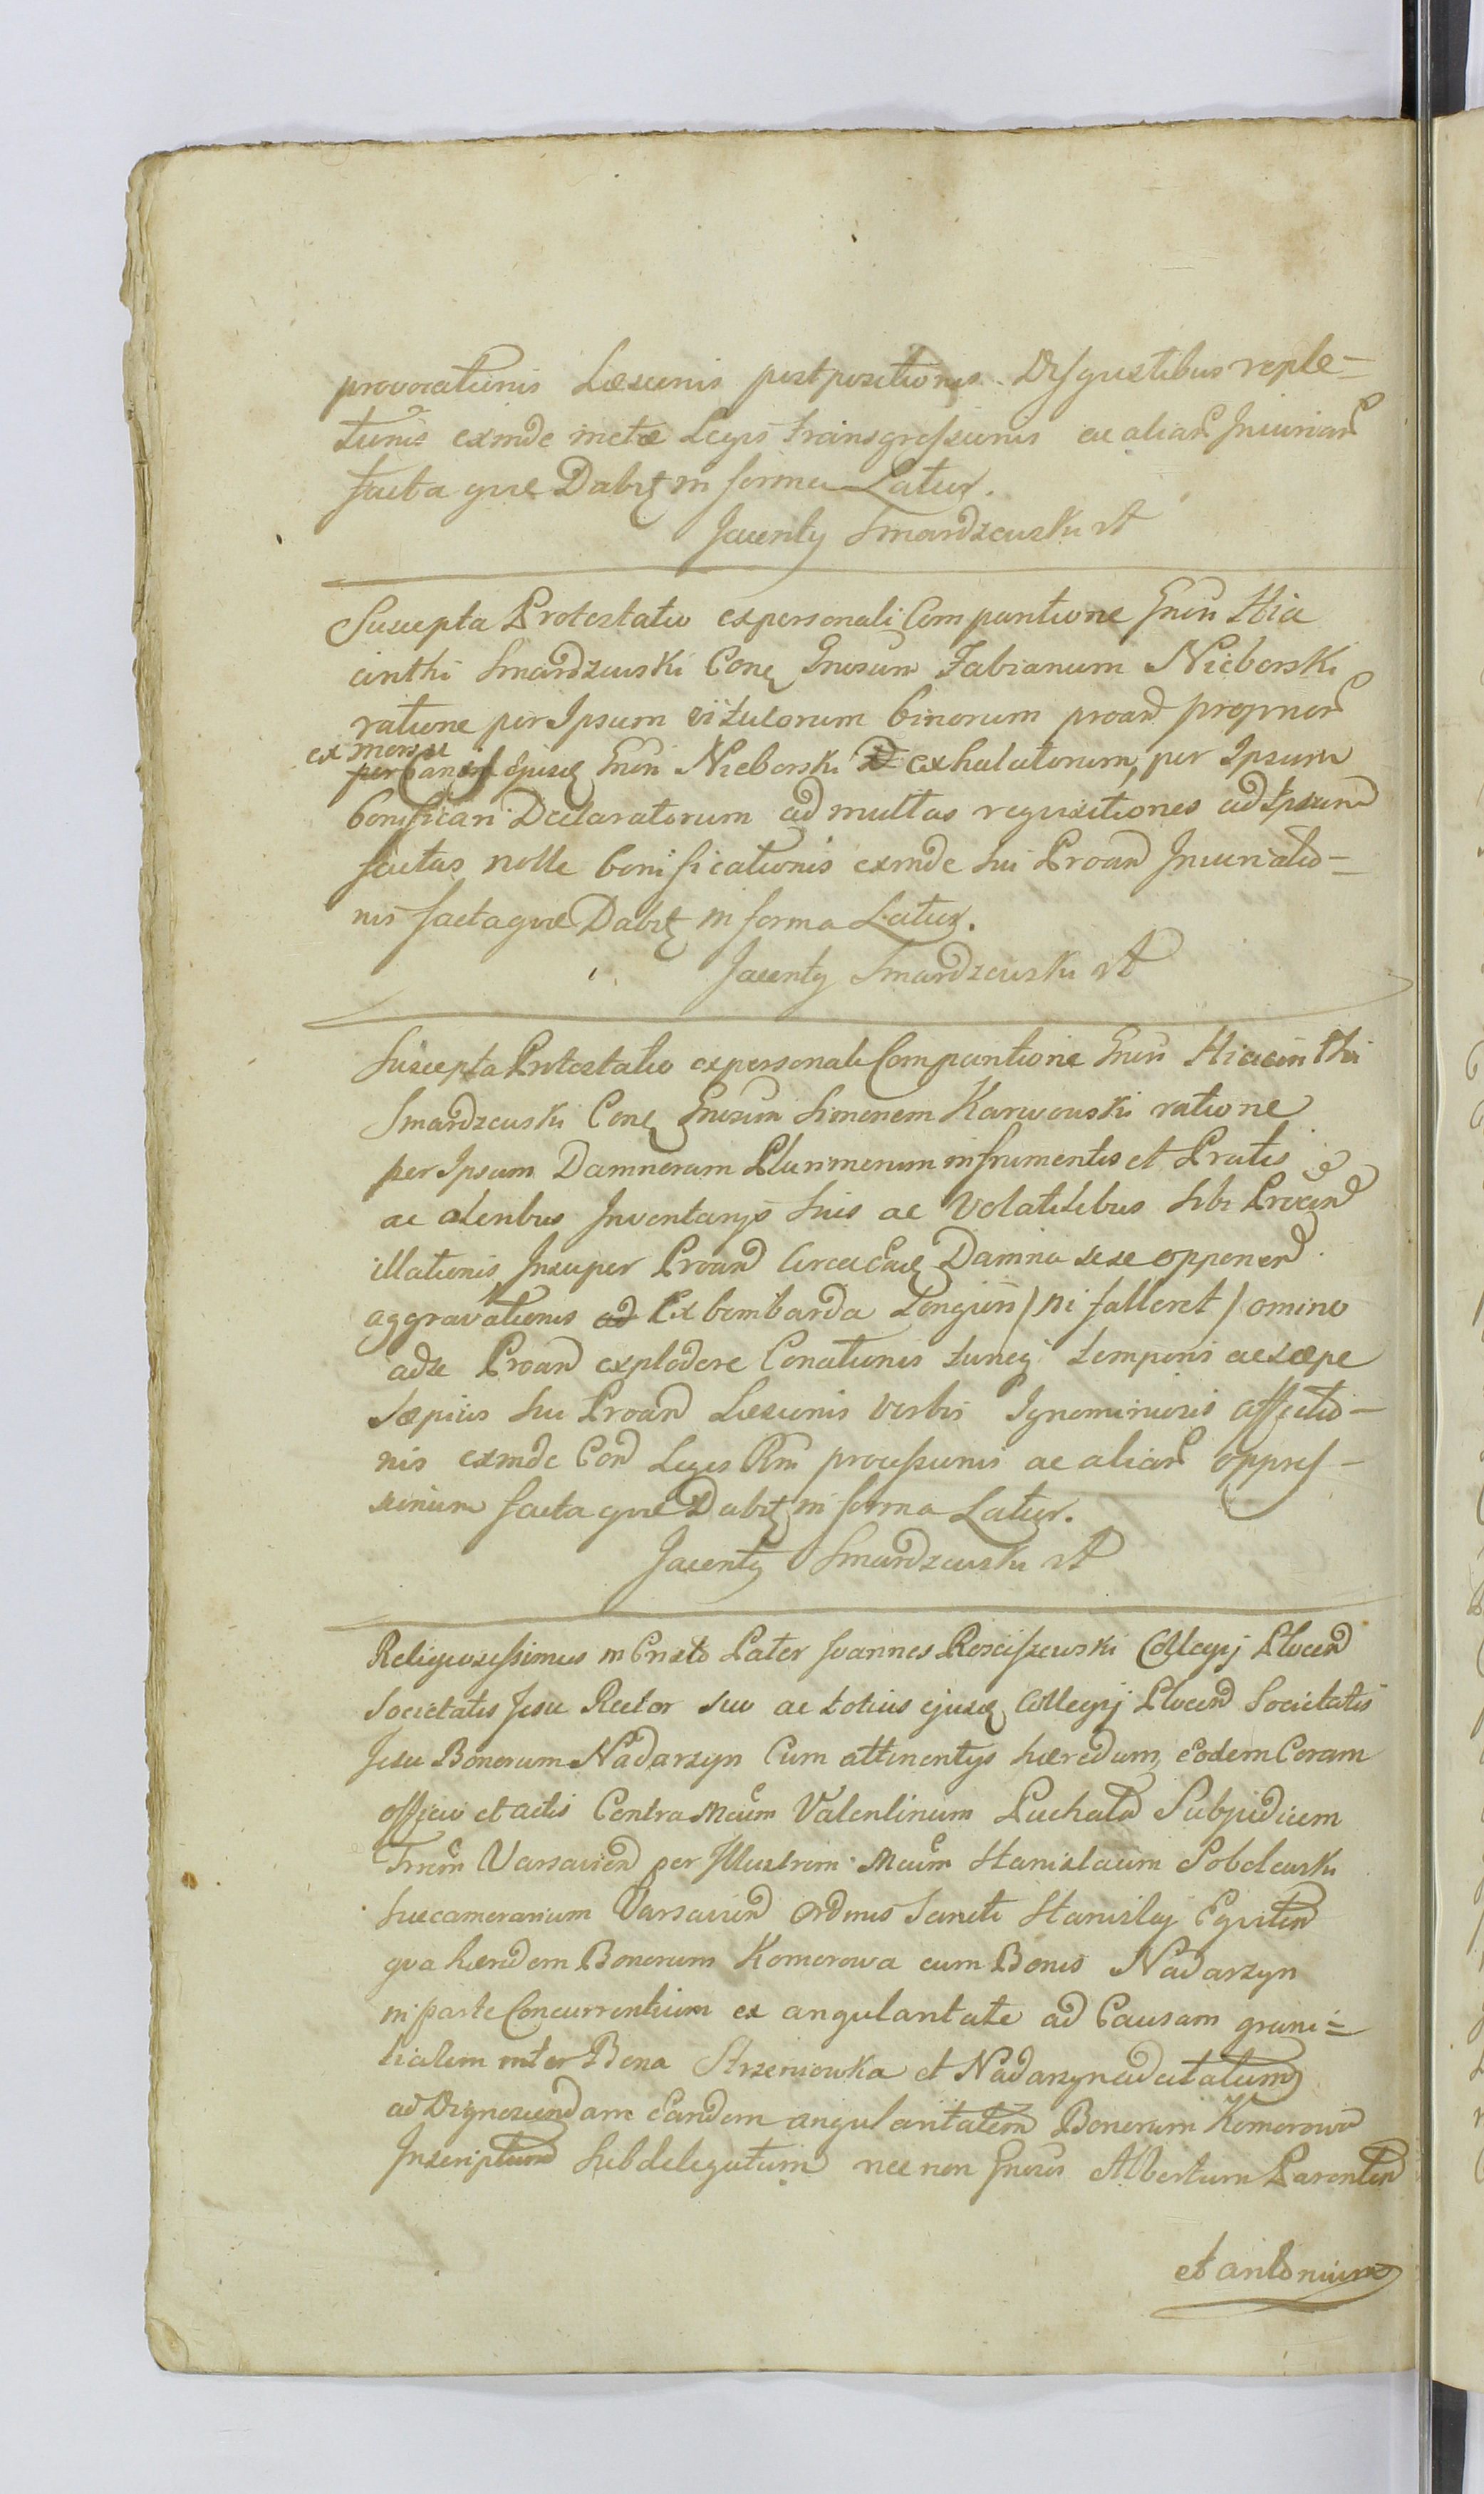 provocationis Læsionis postpositionis Disgustibus reple=
tionis exinde metæ Legis transgressionis ac aliar Iniuriar
facta quæ Dabit in forma Latior.
Jacenty Smardzewski A
Suscepta Protestatio ex personali Comparitione Gnosi Hia
cinthi Smardzewski Cone Gnosum Fabianum Nieborski
ratione per Ipsum vitulorum binorum proand proprior
ex morsu
per Canes ejusd Gnosi Nieborski exhalatorum, per Ipsum
bonificari Declaratorum ad multas requisitiones ad Ipsum
factas nolle bonificationis exinde sui Proand Iniuriatio=
nis facta quæ Dabit in forma Latior.
Jacenty Smardzewski A
Suscepta Protestatio ex personali Comparitione Gnosi Hiacinthi
Smardzewski Cone Gnosum Simonem Karwowski ratione
per Ipsum Damnorum Plurimorum in frumentis et Pratis
ac alentibus Inventarys suis ac Volatilibus sibi
illationis Insuper Proand Damna sese opponend
aggravationis ad Ex bombarda Longiori / ni falleret / omino
adse Proand explodere Conationis tuncq temporis ac sæpe
sæpius sui Proand Læsionis verbis Ignominiosis affectio=
nis exinde Con Leges Rni processionis ac aliar oppres=
sionum facta quæ Dabit in forma Latior.
Jacenty Smardzewski A
Religiosissimus in Cnsto Pater Joannes Rosciszewski Collegij Plocen
Societatis Jesu Rector suo ac totius ejusd Collegij Plocen Societatis
Jesu Bonorum Nadarzyn Cum attinentys hæredum, eodem Coram
officio et actis Contra Mcum Valentinum Puchała Subjudicem
Trrem Varsavien per Illustrem Mcum Stanislaum Sobolewski
Succamerarium Varsavien Ordinis Sancti Stanislaj Equitem
qua hæredem Bonorum Komorowa cum Bonis Nadarzyn
in parte Concurrentium ex angularitate ad Causam grani=
tialem inter Bona Strzeniowka et Nadarzyn adcitatum
ad Dignoscendam eandem angularitatem Bonorum Komorowa
Inscriptum Subdelegatum nec non Gnosos Albertum Parentem
et antonium